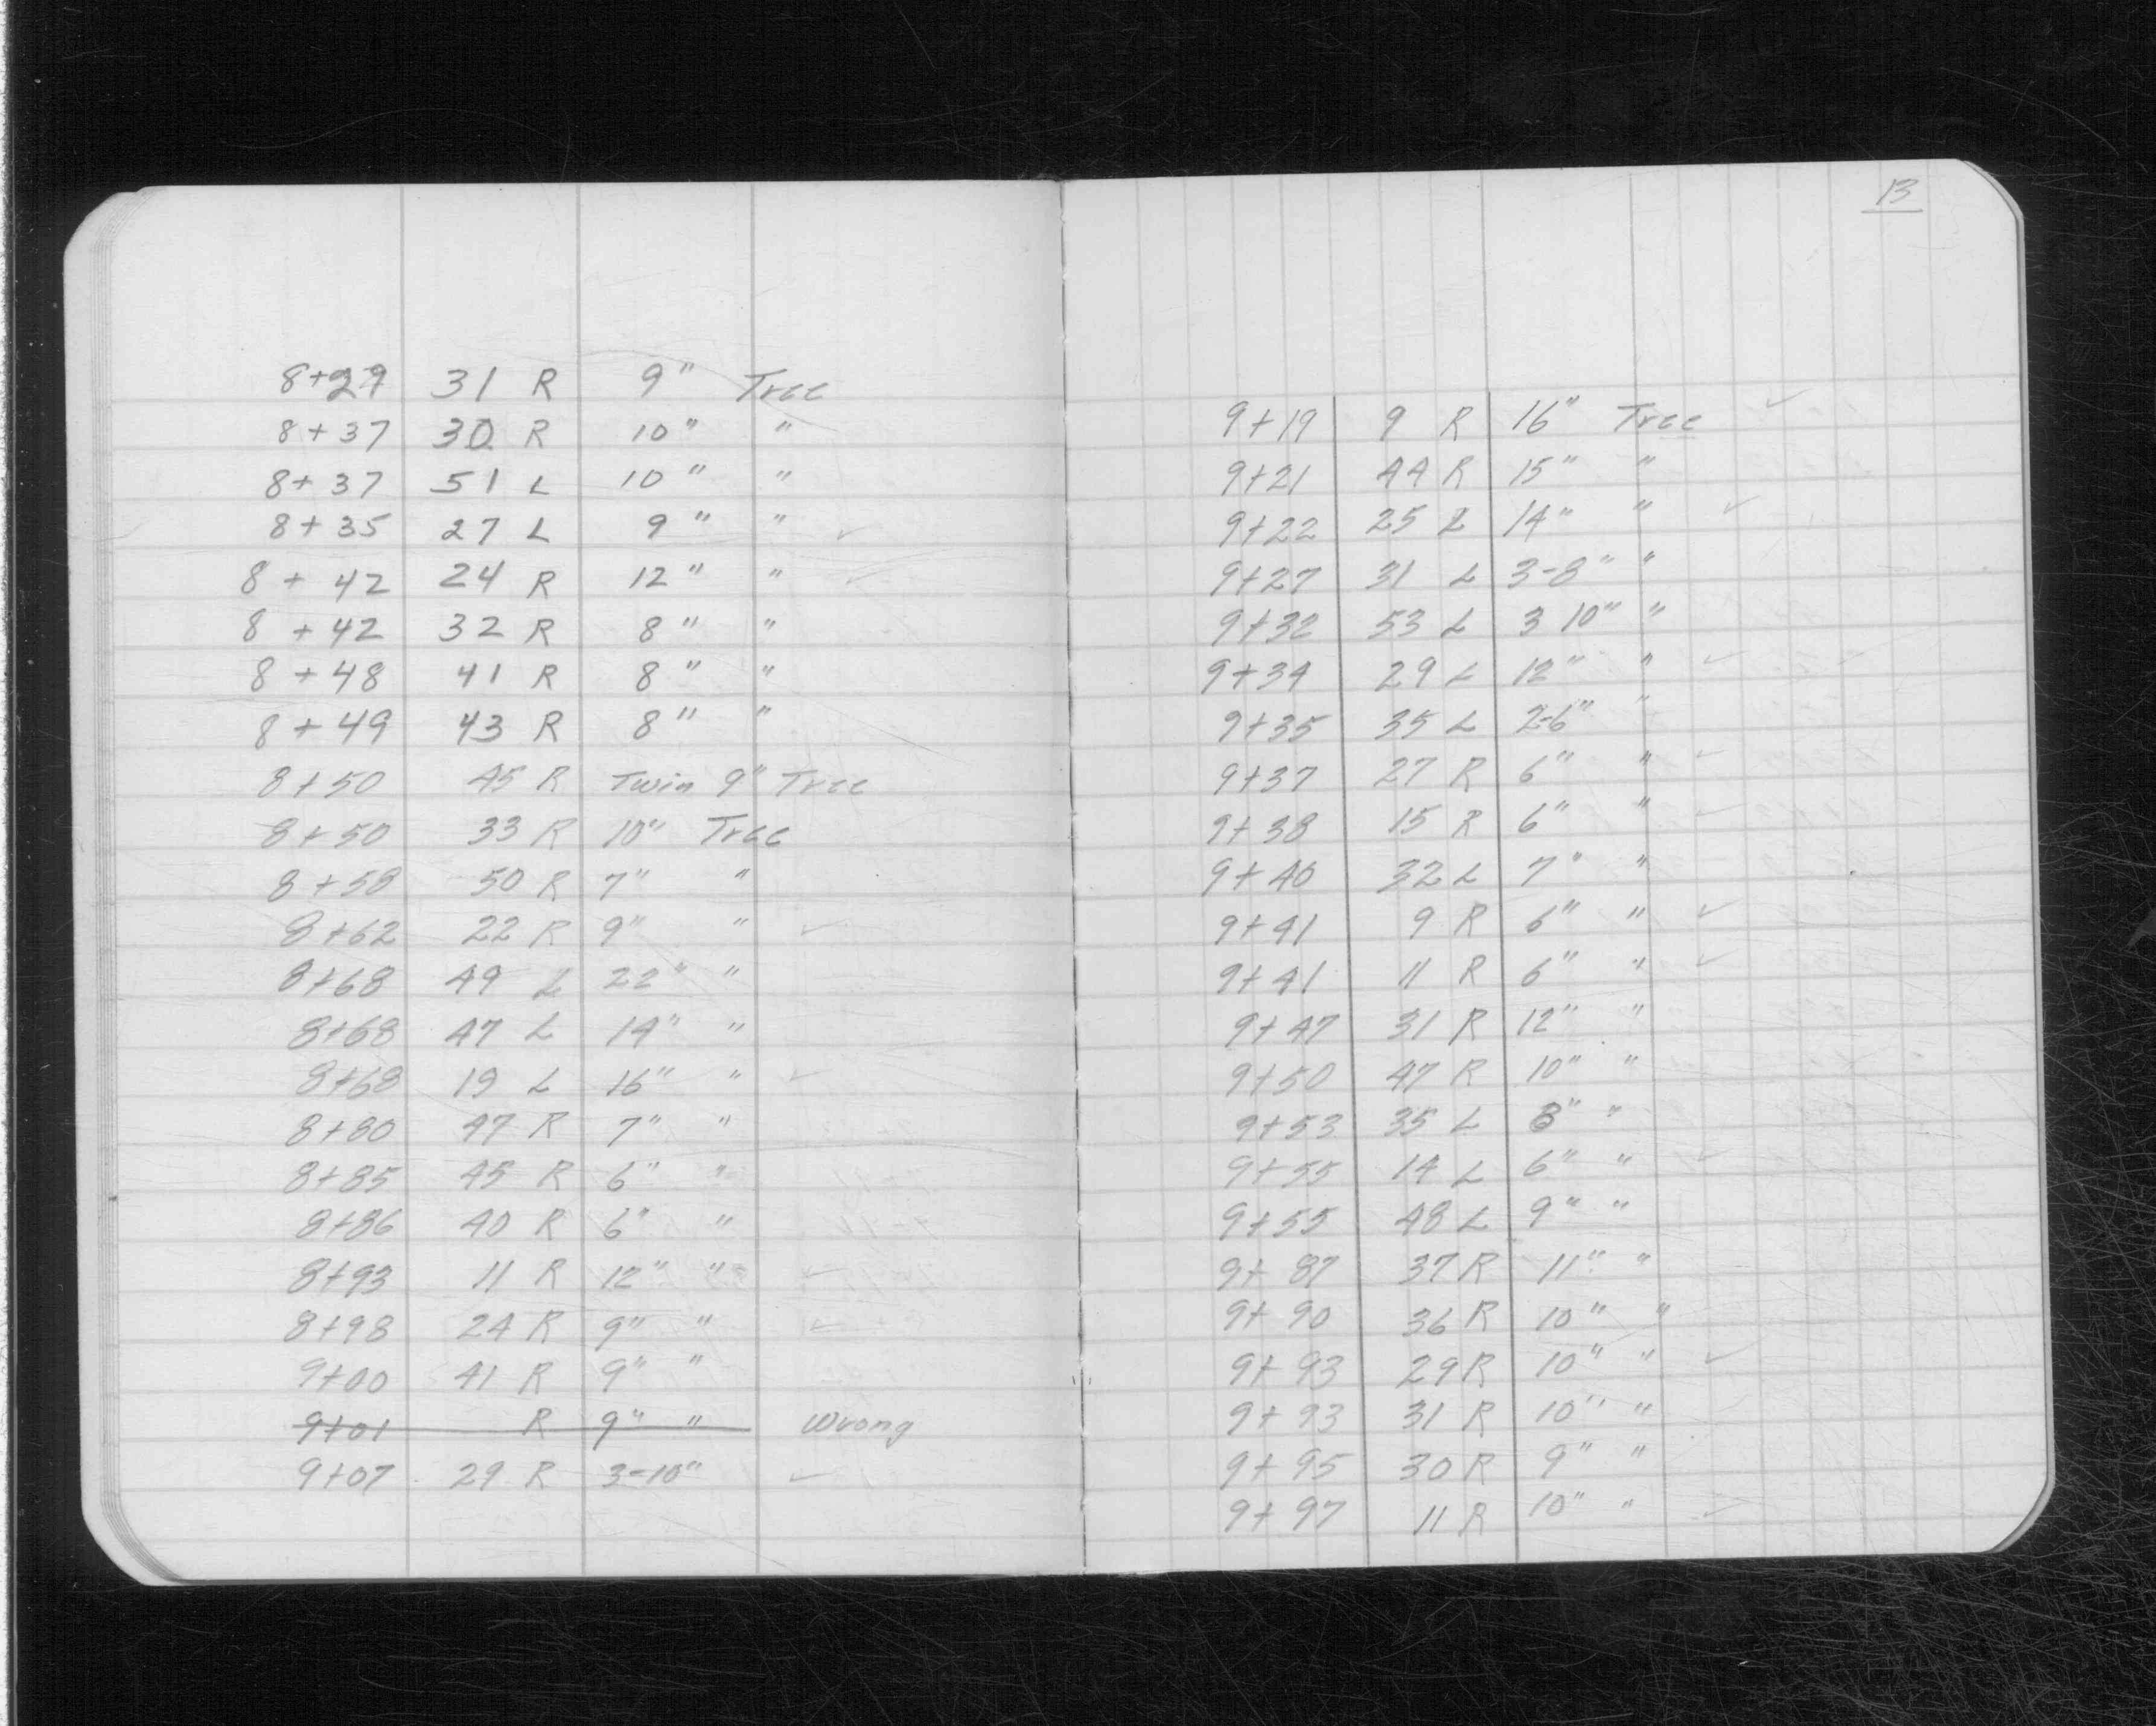 8+29 31 R 9" Tree
8+37 30 R 10" "
8+37 51 L 10" "
8+35 27 L 9" " ✓
8+42 24 R 12" " ✓
8+42 32 R 8" "
8+48 41 R 8" "
8+49 43 R 8" "
8+50 45 R Twin 9" Tree
8+50 33 R 10" Tree
8+58 50 R 7" "
8+62 22 R 9" " ✓
8+68 49 L 22" "
8+68 47 L 14" "
8+68 19 L 16" " ✓
8+80 47 R 7" "
8+85 45 R 6" "
8+86 40 R 6" "
8+93 11 R 12" " ✓
8+98 24 R 9" " ✓
9+00 41 R 9" "
9+01 R 9" " Wrong
9+07 29 R 3-10" ✓
13
9+19 9 R 16" Tree ✓
9+21 44 R 15" "
9+22 25 L 14" " ✓
9+27 31 L 3-8" "
9+32 53 L 3 10" "
9+34 29 L 12" " ✓
9+35 35 L 2-6" "
9+37 27 R 6" " ✓
9+38 15 R 6" " ✓
9+40 32 L 7" "
9+41 9 R 6" " ✓
9+41 11 R 6" " ✓
9+47 31 R 12" "
9+50 47 R 10" "
9+53 35 L 8" "
9+55 14 L 6" " ✓
9+55 48 L 9" "
9+87 37 R 11" "
9+90 36 R 10" "
9+93 29 R 10" " ✓
9+93 31 R 10" "
9+95 30 R 9" "
9+97 11 R 10" " ✓